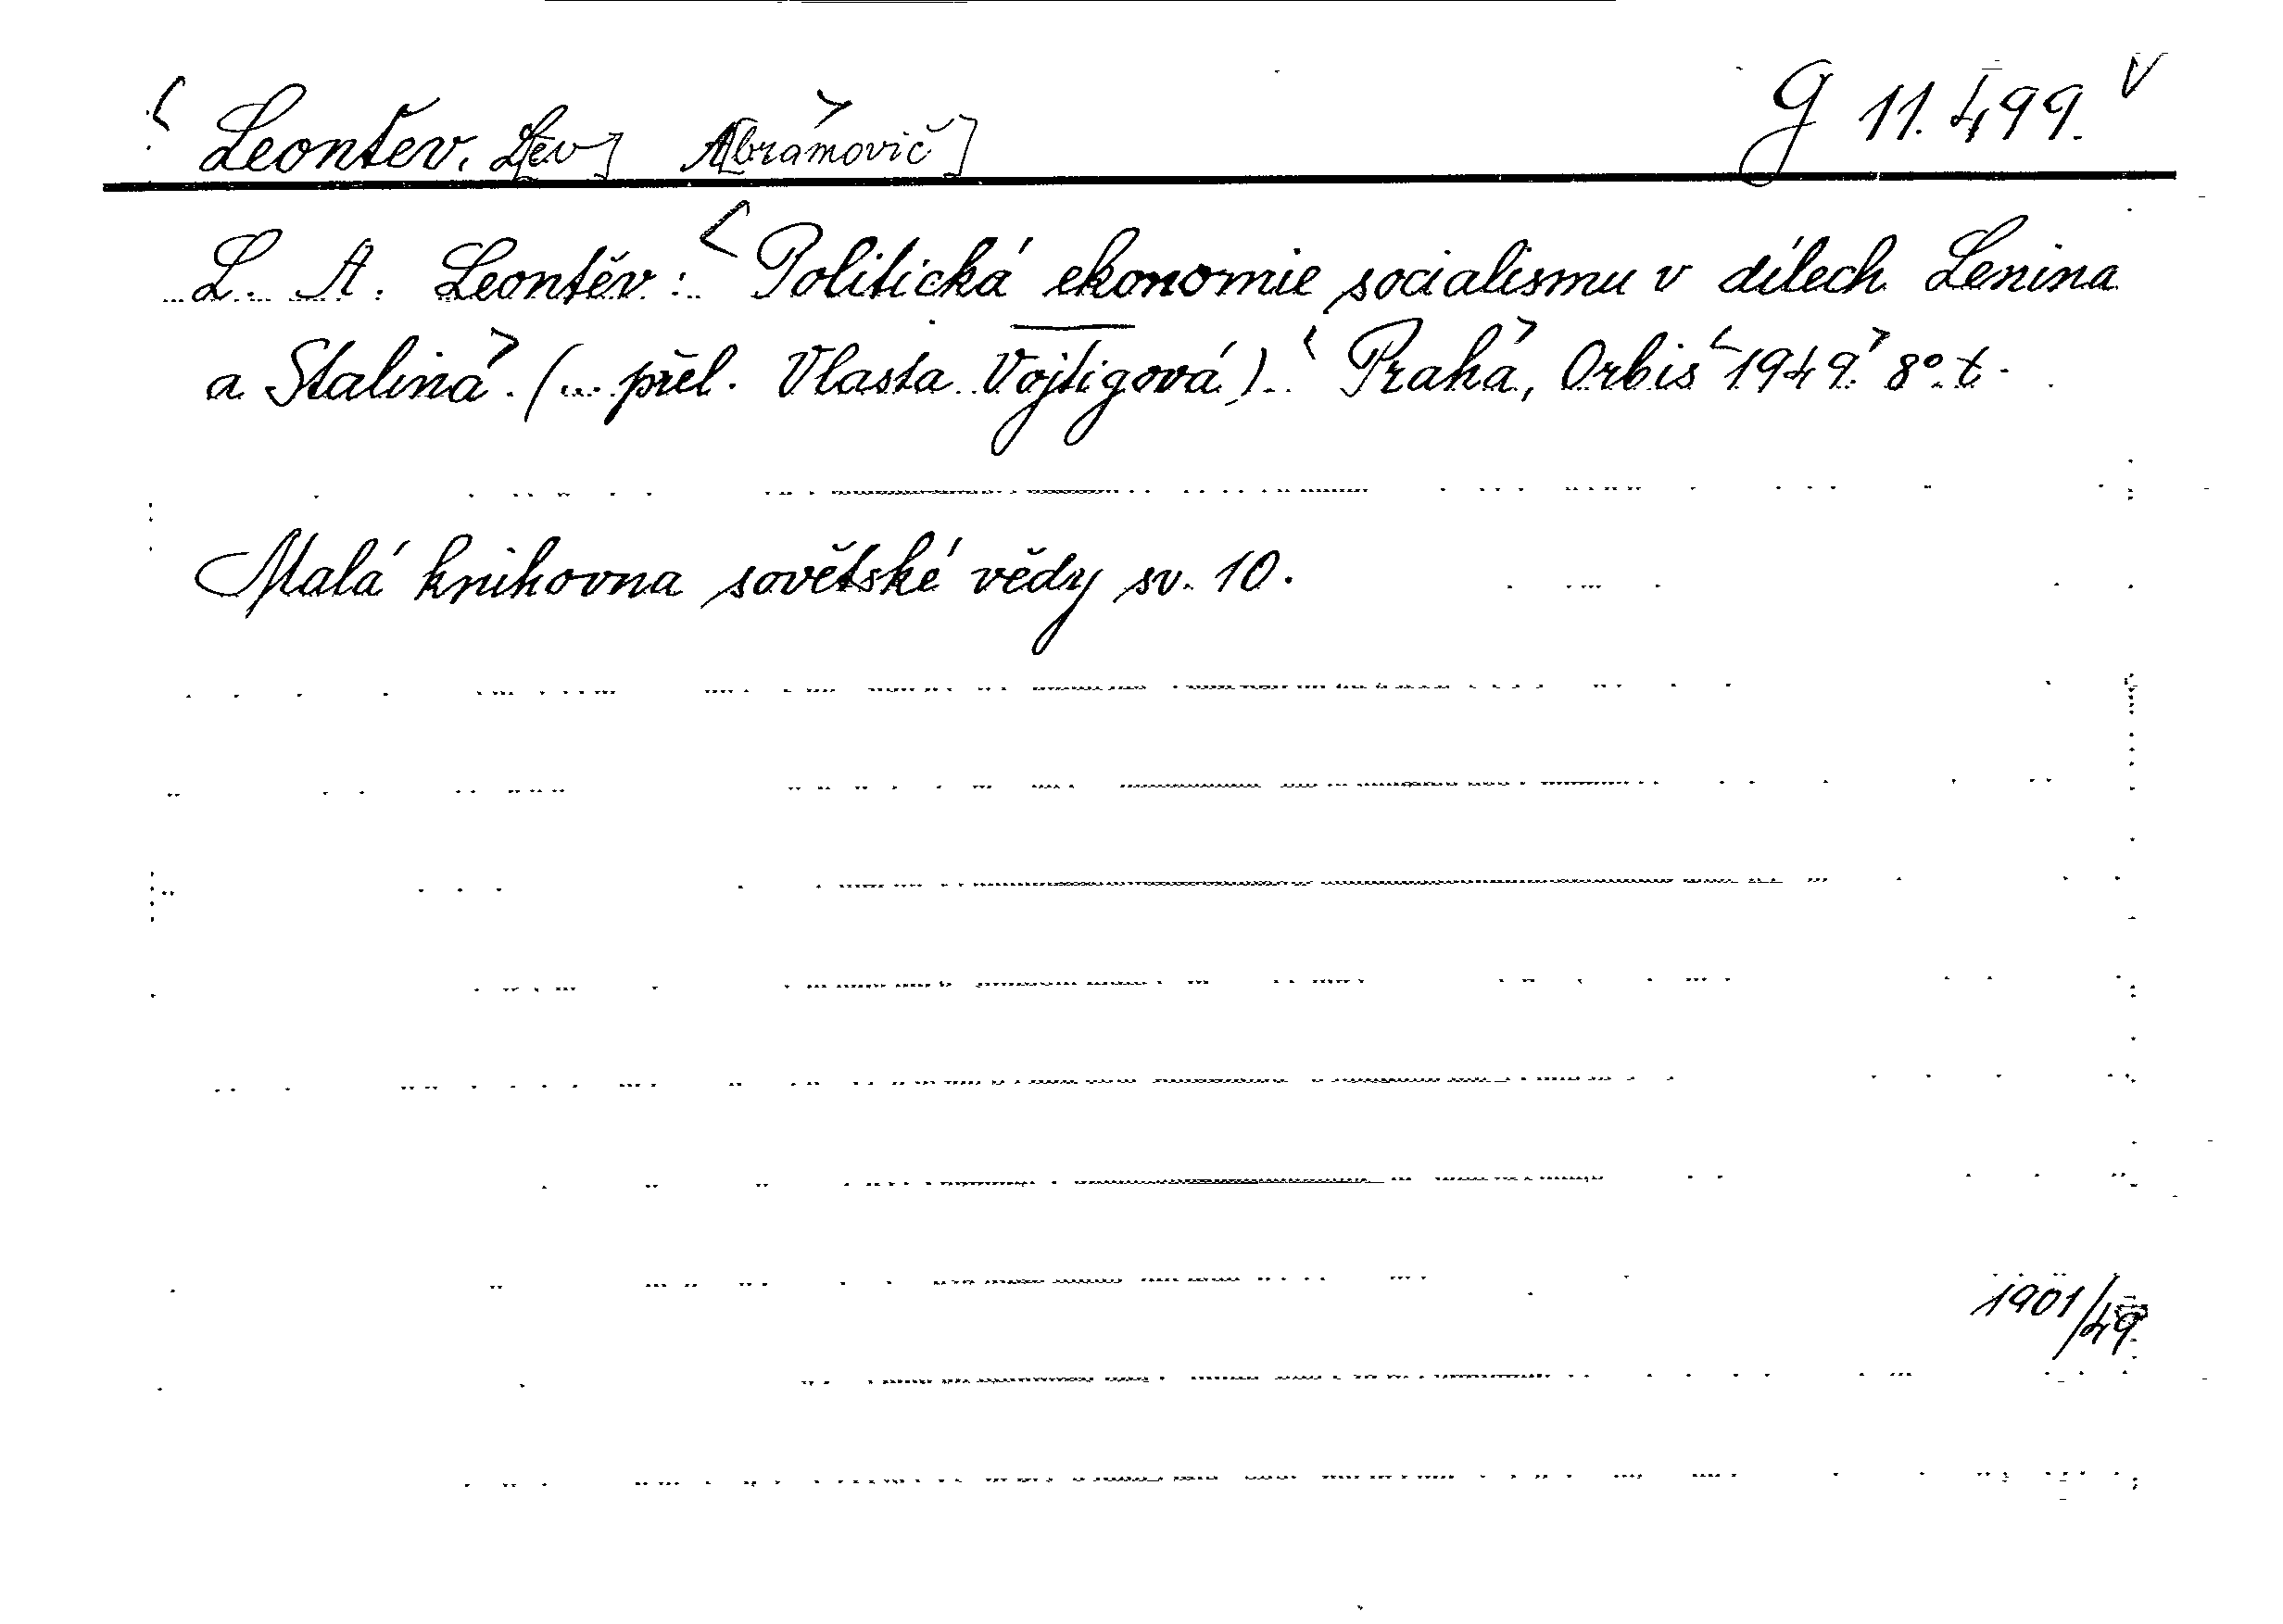 Leontěv, L[ev] A[bramovič] G 11.499.
L. A. Leontěv: Politická ekonomie socialismu v dílech Lenina
a Stalina. (... přel. Vlasta Vojtigová). Praha, Orbis 1949. 8°. t.
Malá knihovna sovětské vědy sv. 10.
1901/49.